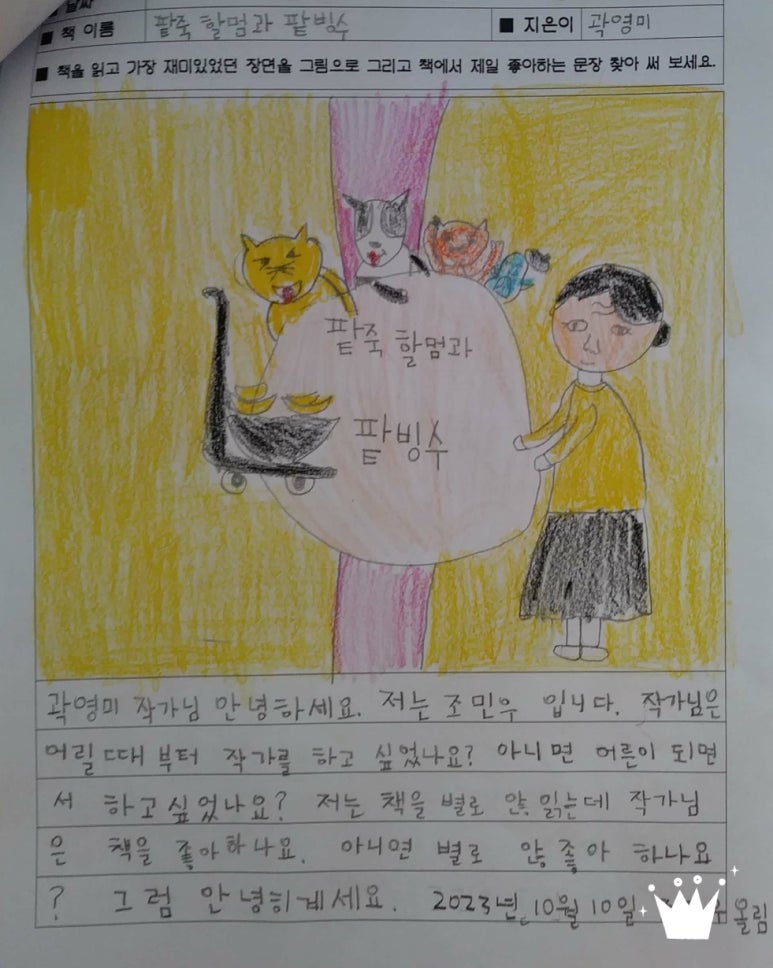 ■ 책 이름 팥죽 할멈과 팥빙수 ■ 지은이 곽영미
■ 책을 읽고 가장 재미있었던 장면을 그림으로 그리고 책에서 제일 좋아하는 문장 찾아 써 보세요.
팥죽 할멈과
팥빙수
곽영미 작가님 안녕하세요. 저는 조민우 입니다. 작가님은
어릴 때부터 작가를 하고 싶었나요? 아니면 어른이 되면
서 하고싶었나요? 저는 책을 별로 안 읽는데 작가님
은 책을 좋아하나요. 아니면 별로 않좋아 하나요
? 그럼 안녕히계세요. 2023년 10월 10일 올림